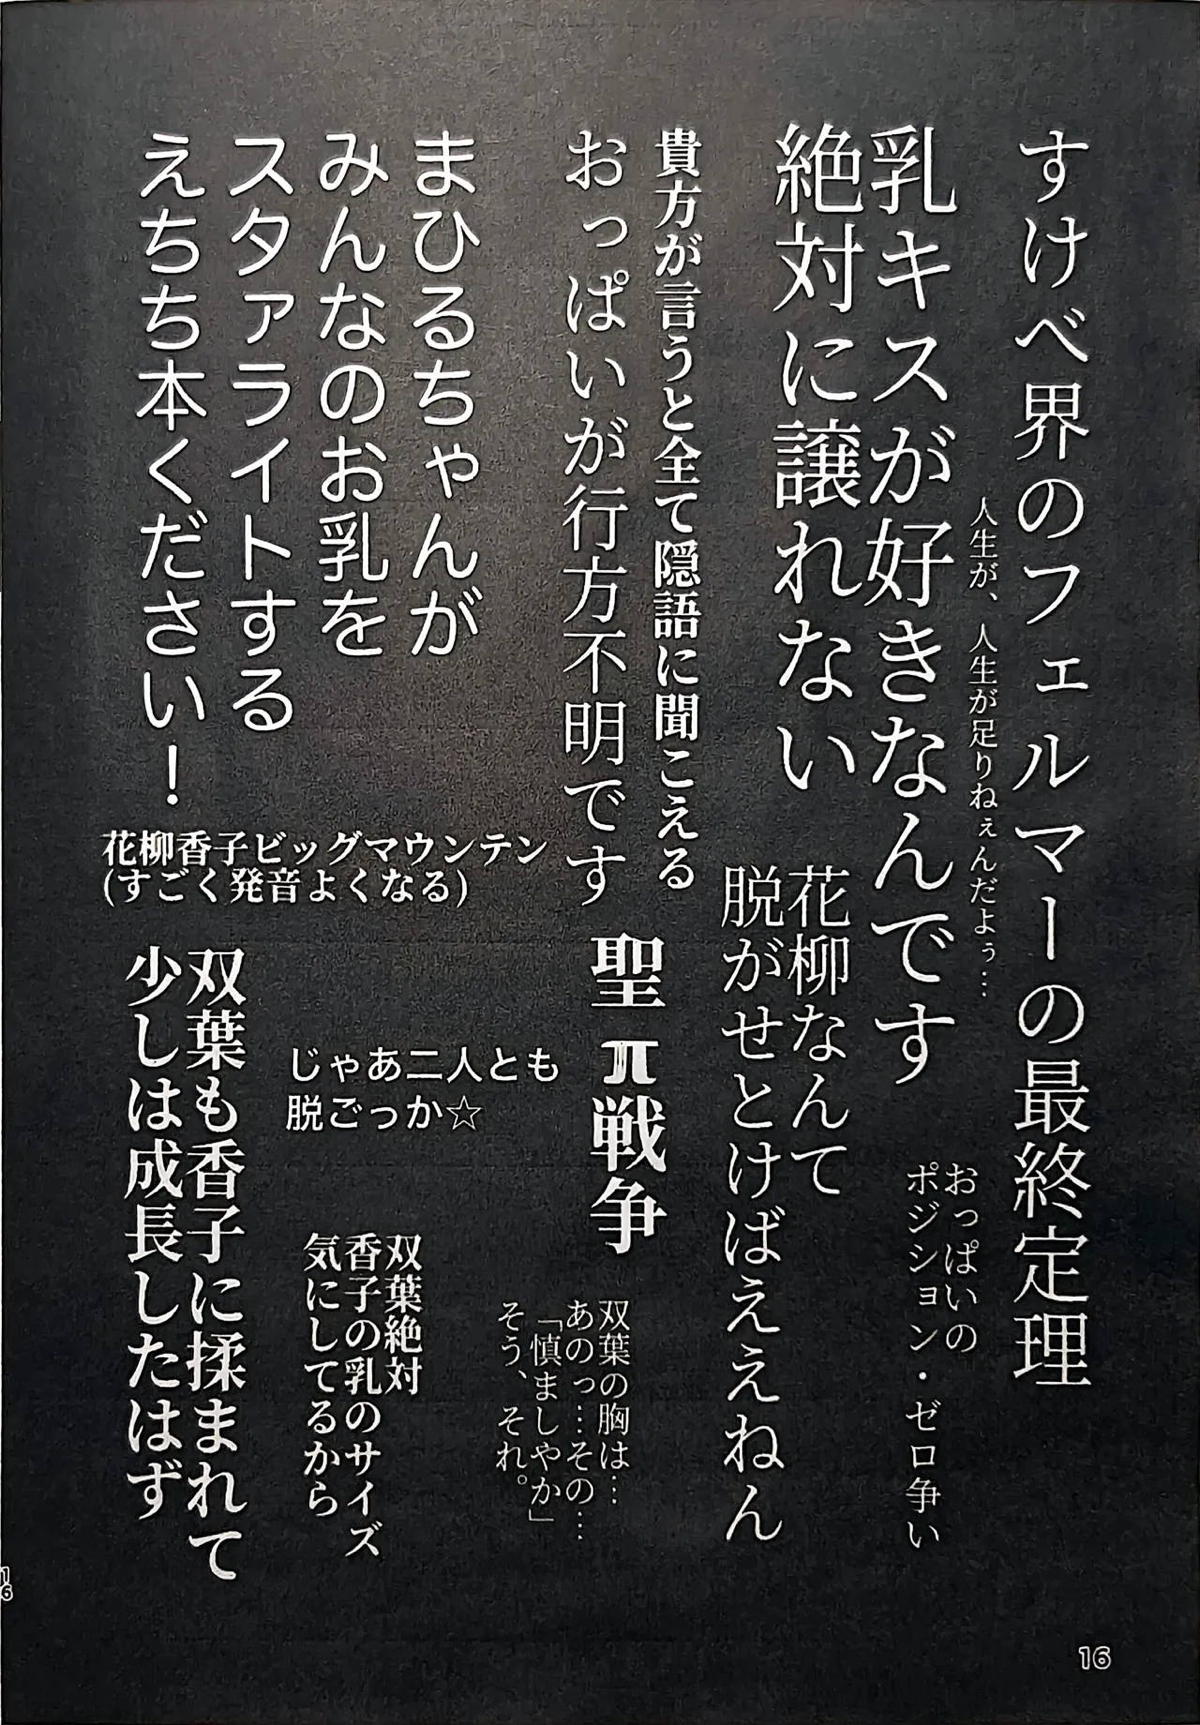 すけべ界のフェルマーの最終定理
人生が、人生が足りねぇんだよぅ…
乳キスが好きなんです
絶対に譲れない
おっぱいの
ポジション・ゼロ争い
花柳なんて
脱がせとけばええねん
貴方が言うと全て隠語に聞こえる
おっぱいが行方不明です
聖π戦争
双葉の胸は…
あのっ…その…
「慎ましやか」
そう、それ。
まひるちゃんが
みんなのお乳を
スタァライトする
えちち本ください！
花柳香子ビッグマウンテン
(すごく発音よくなる)
じゃあ二人とも
脱ごっか☆
双葉絶対
香子の乳のサイズ
気にしてるから
双葉も香子に揉まれて
少しは成長したはず
16
16